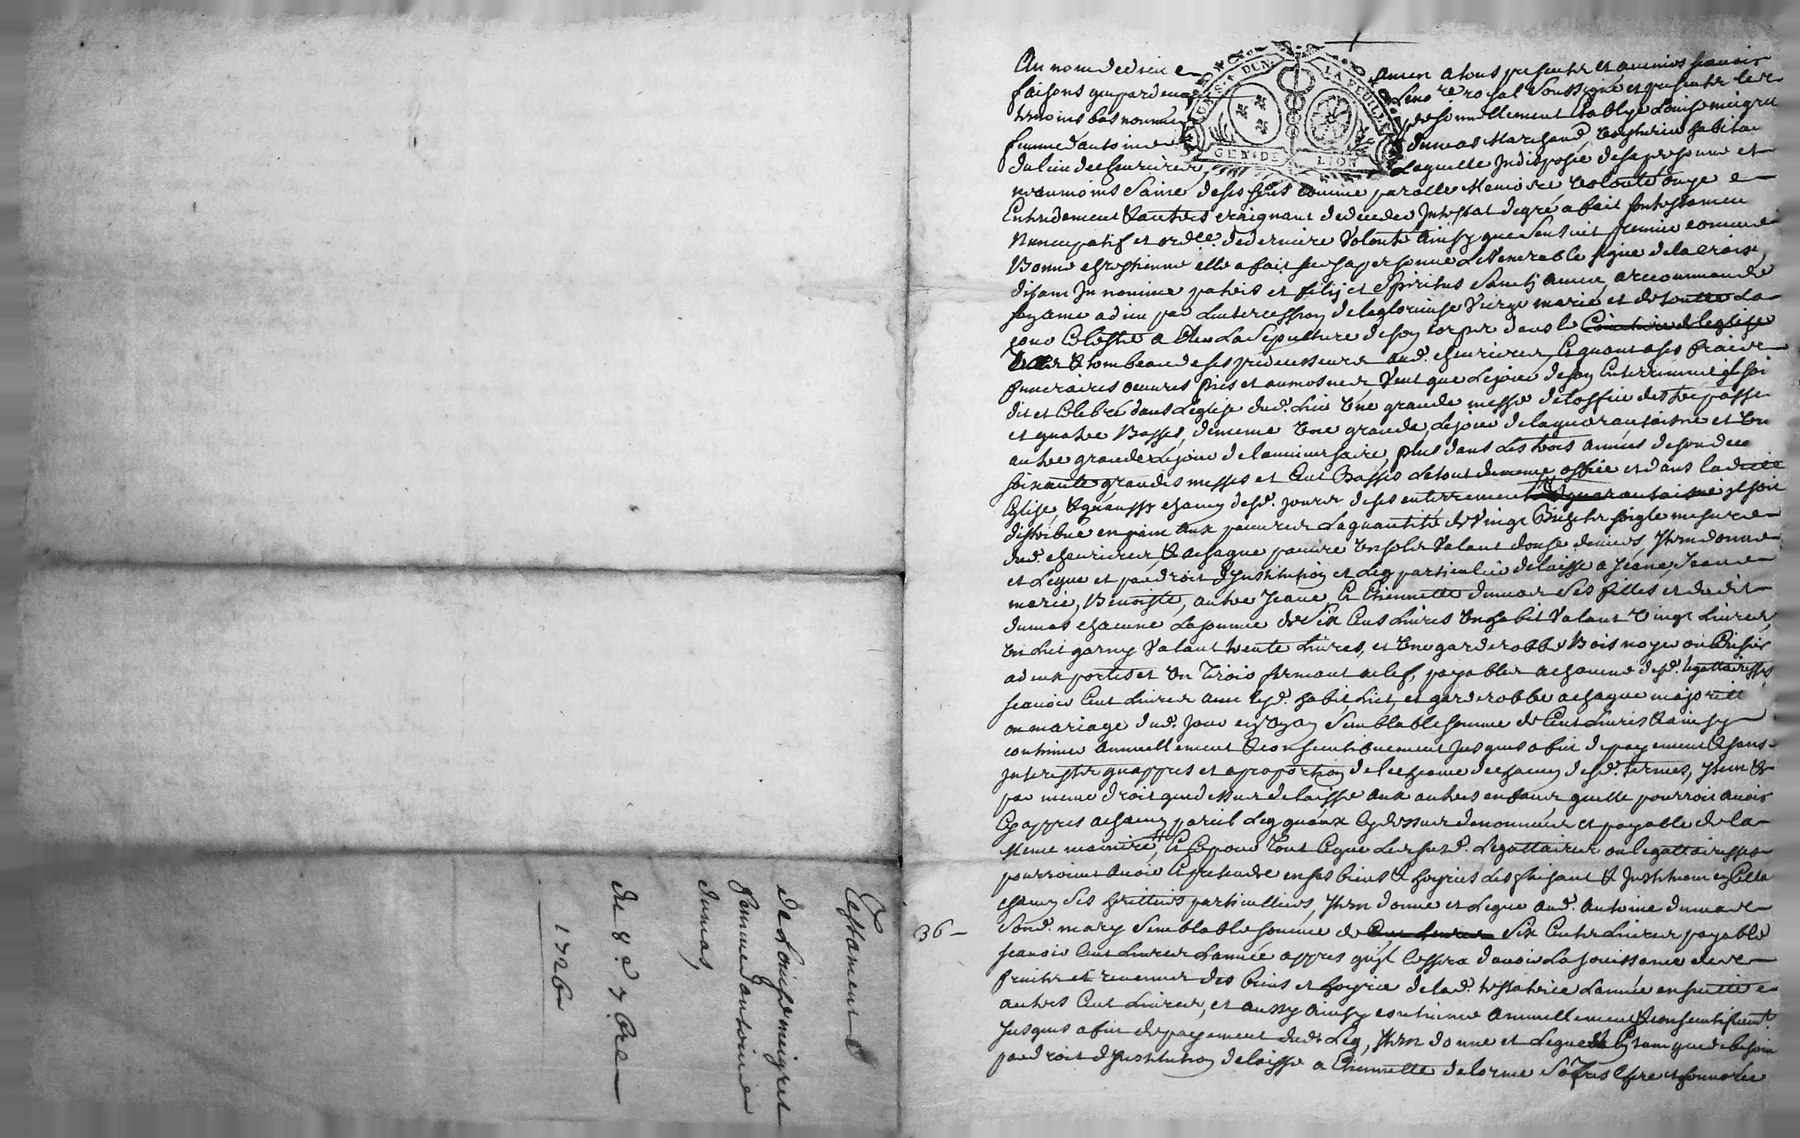 Au nom de dieu
amen a tous presentz et avenirs scavoir
faisons que pardevant
Le no.re royal soussigné et presentz les
tesmoins bas nommés
personnellement establye Louise meigret
femme d'antoine
dumas Marchand habitan
du lieu de cheurieres
Laquelle Indisposée de sa personne et
neanmoins saine de ses sens comme parolle Memoire volonté ouye
Entendement & autres craignant decedeer Intestat de gré a fait son testamen
Nuncupatif et ord.ce de derniere Volonté Ainsy que s'ensuit premier comme
Bonne chrestienne elle a fait sur sa personne Le Venerable signe de la croix,
disant In nomine patris et filij et spiritus Sancti Amen, a recommandé
son ame a dieu par L'intercession de la glorieuse Vierge marie et de toutte La
cour Celeste a Eleu La Sepulture de son corps dans le Cimetiere de l'eglise
tombeau de ses predecesseurs aud. cheurieres, Et quant a ses fraix
funeraires oeuvres pies et aumosnes Veut que Le jour de son Enterrement il soi
dit et Celebré dans L'eglise dud. lieu Une grande messe de L'office des trepassés
et quatre Basses, de meme Une grande, Le jour de la quarantaine et Un
autre grande Le jour de l'anniversaire, plus dans Les trois années de son deces
soixante grandes messes et Cent Basses Le tout de meme office et dans ladite
Eglise, & qu'aussy chacun desd. jours de ses enterrement & quarantaine il soit
distribué en pain aux pauvres La quantité de Vingt Bichetz seigle mesure
dud. cheurieres & a chaque pauvre Un sold Valant douse deniers, Item donne
et Legue et par droit d'Institution et Leg particulier delaisse a Jeane, Jeanne
marie, Benoiste, autre Jeane Et Estiennette dumas Ses filles et dudit
dumas chacune La somme de Six Cens Livres Un habit Valant Vingt Livres,
Un Lict garny Valant trente Livres, et Une garderobbe Bois noyer ou Cerisier
a deux portes et Un Tiroir fermant a clef, payables a chacune desd. Legattairesses
scavoir Cent Livres avec lesd. habit, Lict, et garderobbe a chaque majorité
ou mariage dud. Jour en Un an Semblable somme de Cent Livres & ainsy
continuer Annuellement & consecutivement Jusques a fin de payement & sans
Interestz qu'appres et a proportion de l'escheance de chacun desd. termes, Item &
par meme droit que dessus delaisse aux autres enfans qu'elle pourroit avoir
Cy appres a chacun pareil Leg qu'aux Cy dessus denommées et payable de la
Meme maniere, Et Ce pour Tout Ce que Les susd. Legattaires ou legattairesses
pourroient avoir Et pretendre en ses biens & hoyries Les faisant & Instituant en Cella
chacun Ses heritiers particulliers, Item donne et Legue aud. Antoine dumas
Sond. mary Semblable somme de Cent Livres Six Cents Livres payable
scavoir Cent Livres L'année appres qu'il Cessera d'avoir La Jouissance des
fruits et revenus des biens et hoyrie de lad. testatrice L'année ensuitte
autres Cent Livres, et aussy Ainsy continuer Annuellement & consecutivem.t
Jusques a fin de payement dud. Leg, Item donne et Legue
par droit d'Institution delaisse a Estiennette delorme
36 -
Testament
de Louise meigret
femme d'antoine
dumas,
du 8.e 7bre
1726